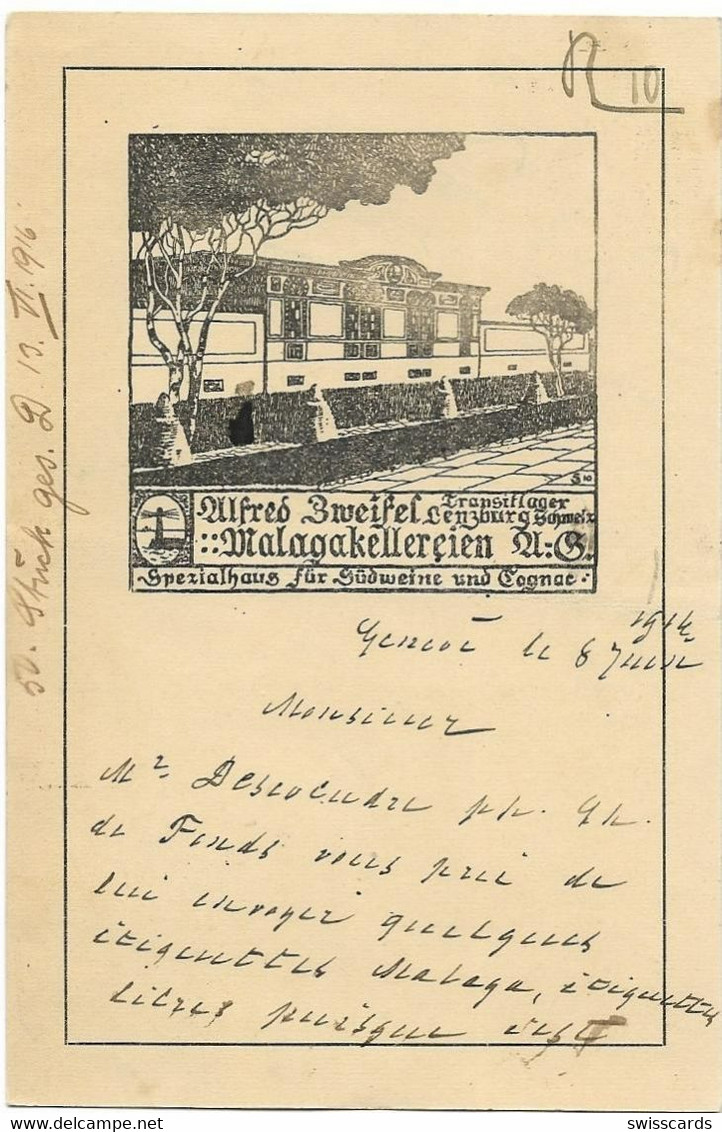 R 10
50. Stück ges. D. 13. VI. 1916
Alfred Zweifel Transitlager Lenzburg Schweiz
::Malagakellereien A:G.
Spezialhaus für Südweine und Cognac.
1914
Genève le 8 Juin
Monsieur
Mr. Descoeudre ph. Ch.
de Fonds vous prie de
lui envoyer quelques
étiquettes Malaga, étiquettes
litres puisque
swisscards